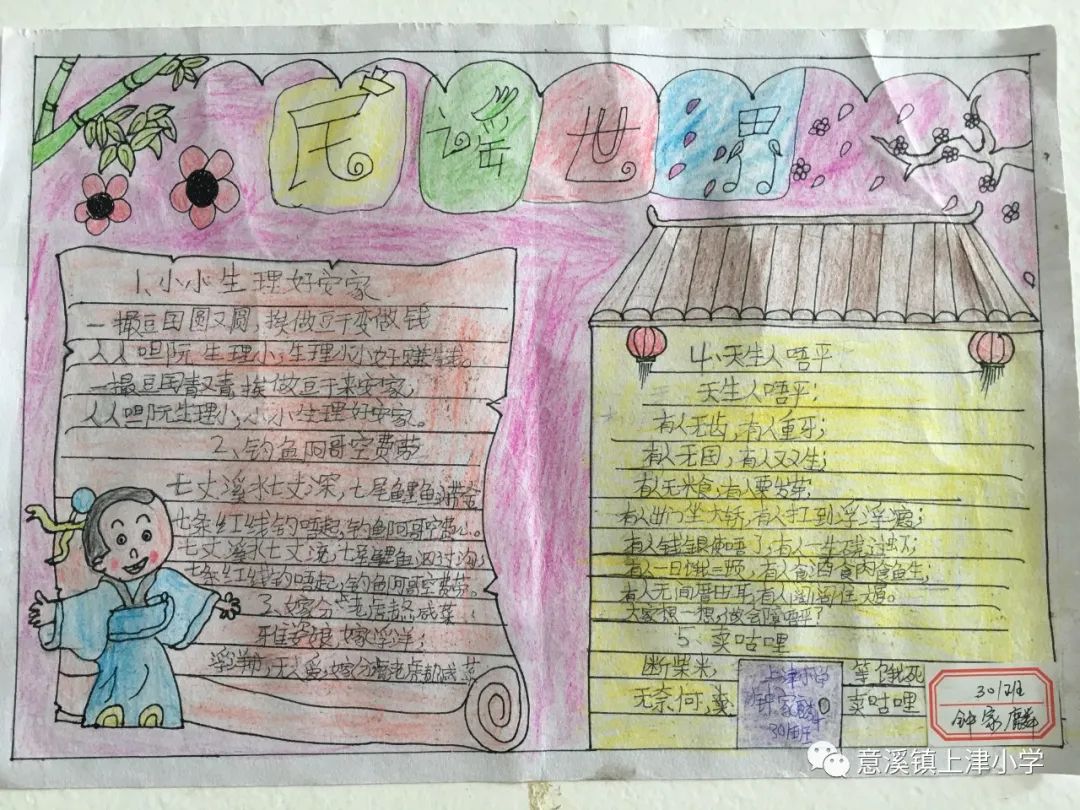 民谣世界
1、小小生理好安家
一撮豆囝圆又圆,挨做豆干变做钱
人人呾阮生理小,生理小小好赚钱。
一撮豆囝青又青,挨做豆干来安家;
人人呾阮生理小,小小生理好安家。
2、钓鱼阿哥空费劳
七丈溪水七丈深,七尾鲤鱼
七条红线钓唔起,钓鱼阿哥空费心。
七丈溪水七丈流,七尾鲤鱼
七条红线钓唔起,钓鱼阿哥空费劳。
3、嫁分
雅姿娘嫁浮洋;
浮洋
4、天生人唔平
天生人唔平:
有人无齿,有人重牙;
有人无囝,有人又又生;
有人无米食,有人粟发芽;
有人出门坐大轿,有人扛到浮浮
有人钱银使唔了,有人一生
有人一日饿三顿,有人食酒食肉食鱼生;
有人无间厝
大家想一想,做会障唔平?
5、卖咕哩
断柴米, 等饿死
无奈何, 卖咕哩
上津小学
钟家麟
301班
301班
钟家麟
意溪镇上津小学